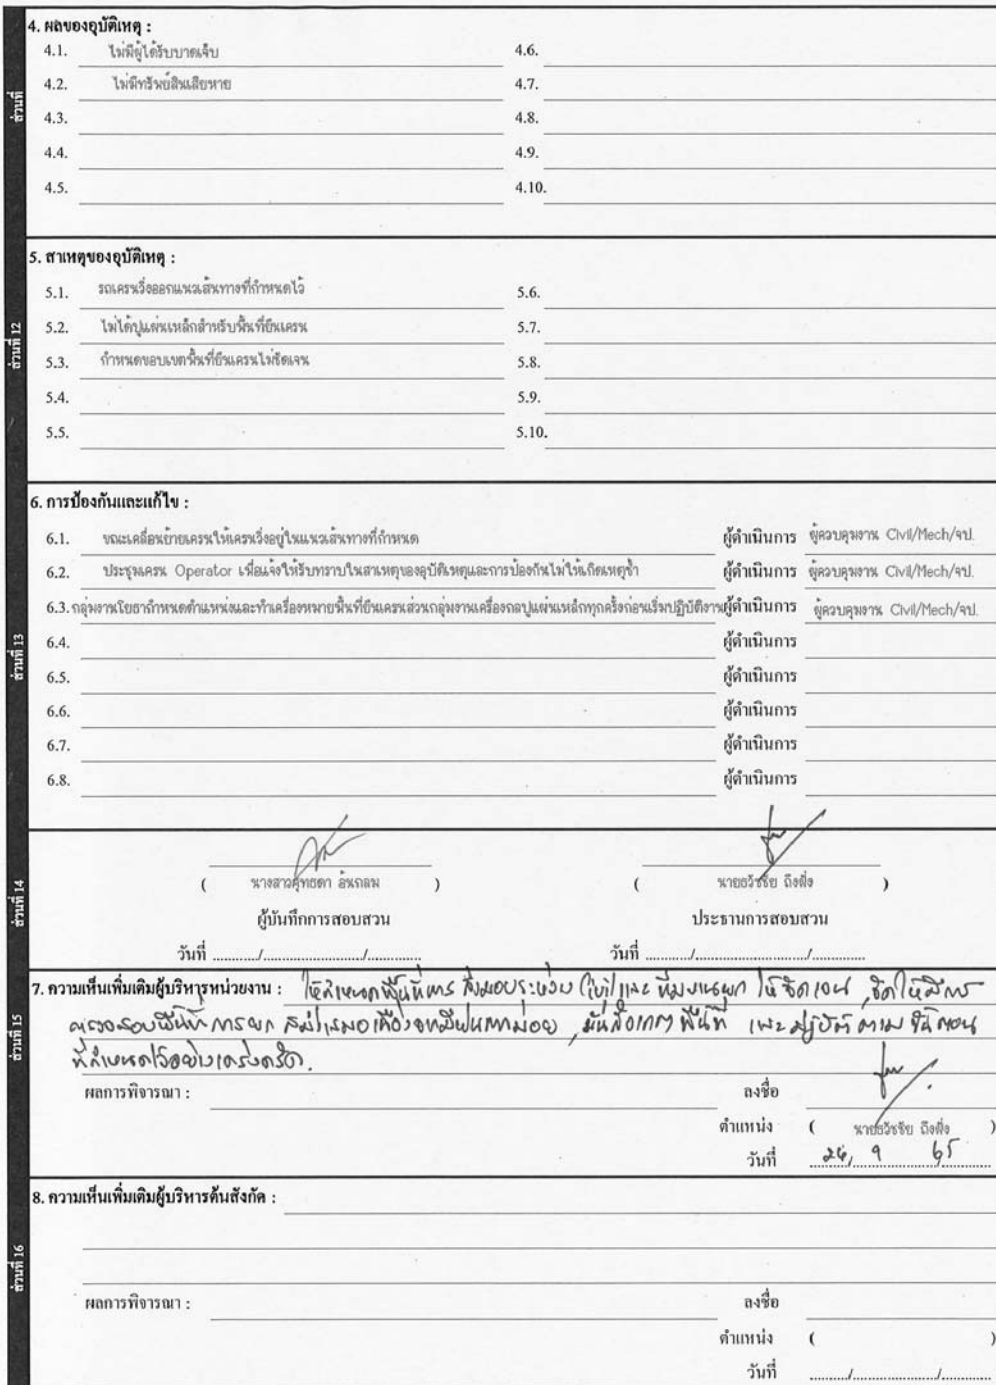 4. ผลของอุบัติเหตุ :
4.1. ไม่มีผู้ได้รับบาดเจ็บ 4.6.
4.2. ไม่มีทรัพย์สินเสียหาย 4.7.
ส่วนที่
4.3. 4.8.
4.4. 4.9.
4.5. 4.10.
5. สาเหตุของอุบัติเหตุ :
5.1. รถเครนวิ่งออกแนวเส้นทางที่กำหนดไว้ 5.6.
5.2. ไม่ได้ปูแผ่นเหล็กสำหรับพื้นที่ยืนเครน 5.7.
ส่วนที่ 12
5.3. กำหนดขอบเขตพื้นที่ยืนเครนไม่ชัดเจน 5.8.
5.4. 5.9.
5.5. 5.10.
6. การป้องกันและแก้ไข :
6.1. ขณะเคลื่อนย้ายเครนให้เครนวิ่งอยู่ในแนวเส้นทางที่กำหนด ผู้ดำเนินการ ผู้ควบคุมงาน Civil/Mech/จป.
6.2. ประชุมเครน Operator เพื่อแจ้งให้รับทราบในสาเหตุของอุบัติเหตุและการป้องกันไม่ให้เกิดเหตุซ้ำ ผู้ดำเนินการ ผู้ควบคุมงาน Civil/Mech/จป.
6.3. กลุ่มงานโยธากำหนดตำแหน่งและทำเครื่องหมายพื้นที่ยืนเครนส่วนกลุ่มงานเครื่องกลปูแผ่นเหล็กทุกครั้งก่อนเริ่มปฏิบัติงาน ผู้ดำเนินการ ผู้ควบคุมงาน Civil/Mech/จป.
6.4. ผู้ดำเนินการ
ส่วนที่ 13
6.5. ผู้ดำเนินการ
6.6. ผู้ดำเนินการ
6.7. ผู้ดำเนินการ
6.8. ผู้ดำเนินการ
( นางสาวศุทธดา อ้นถลม ) ( นายธวัชชัย ถึงฝั่ง )
ส่วนที่ 14
ผู้บันทึกการสอบสวน ประธานการสอบสวน
วันที่ ............/......................../............. วันที่ ............/......................../.............
7. ความเห็นเพิ่มเติมผู้บริหารหน่วยงาน : ให้กำหนดพื้นที่การ ส่งมอบระหว่าง และ ทีมงานยก ให้ชัดเจน จัดให้มีการ
ส่วนที่ 15
ตรวจสอบพื้นที่ การยก สม่ำเสมอ เนื่องจากมีฝนตกบ่อย พื้นที่ และ ปฏิบัติ ตาม ขั้นตอน
ที่กำหนดไว้อย่างเคร่งครัด.
ผลการพิจารณา : ลงชื่อ
ตำแหน่ง ( นายธวัชชัย ถึงฝั่ง )
วันที่ 9 65
8. ความเห็นเพิ่มเติมผู้บริหารต้นสังกัด :
ส่วนที่ 16
ผลการพิจารณา : ลงชื่อ
ตำแหน่ง ( )
วันที่ ............/......................../.............